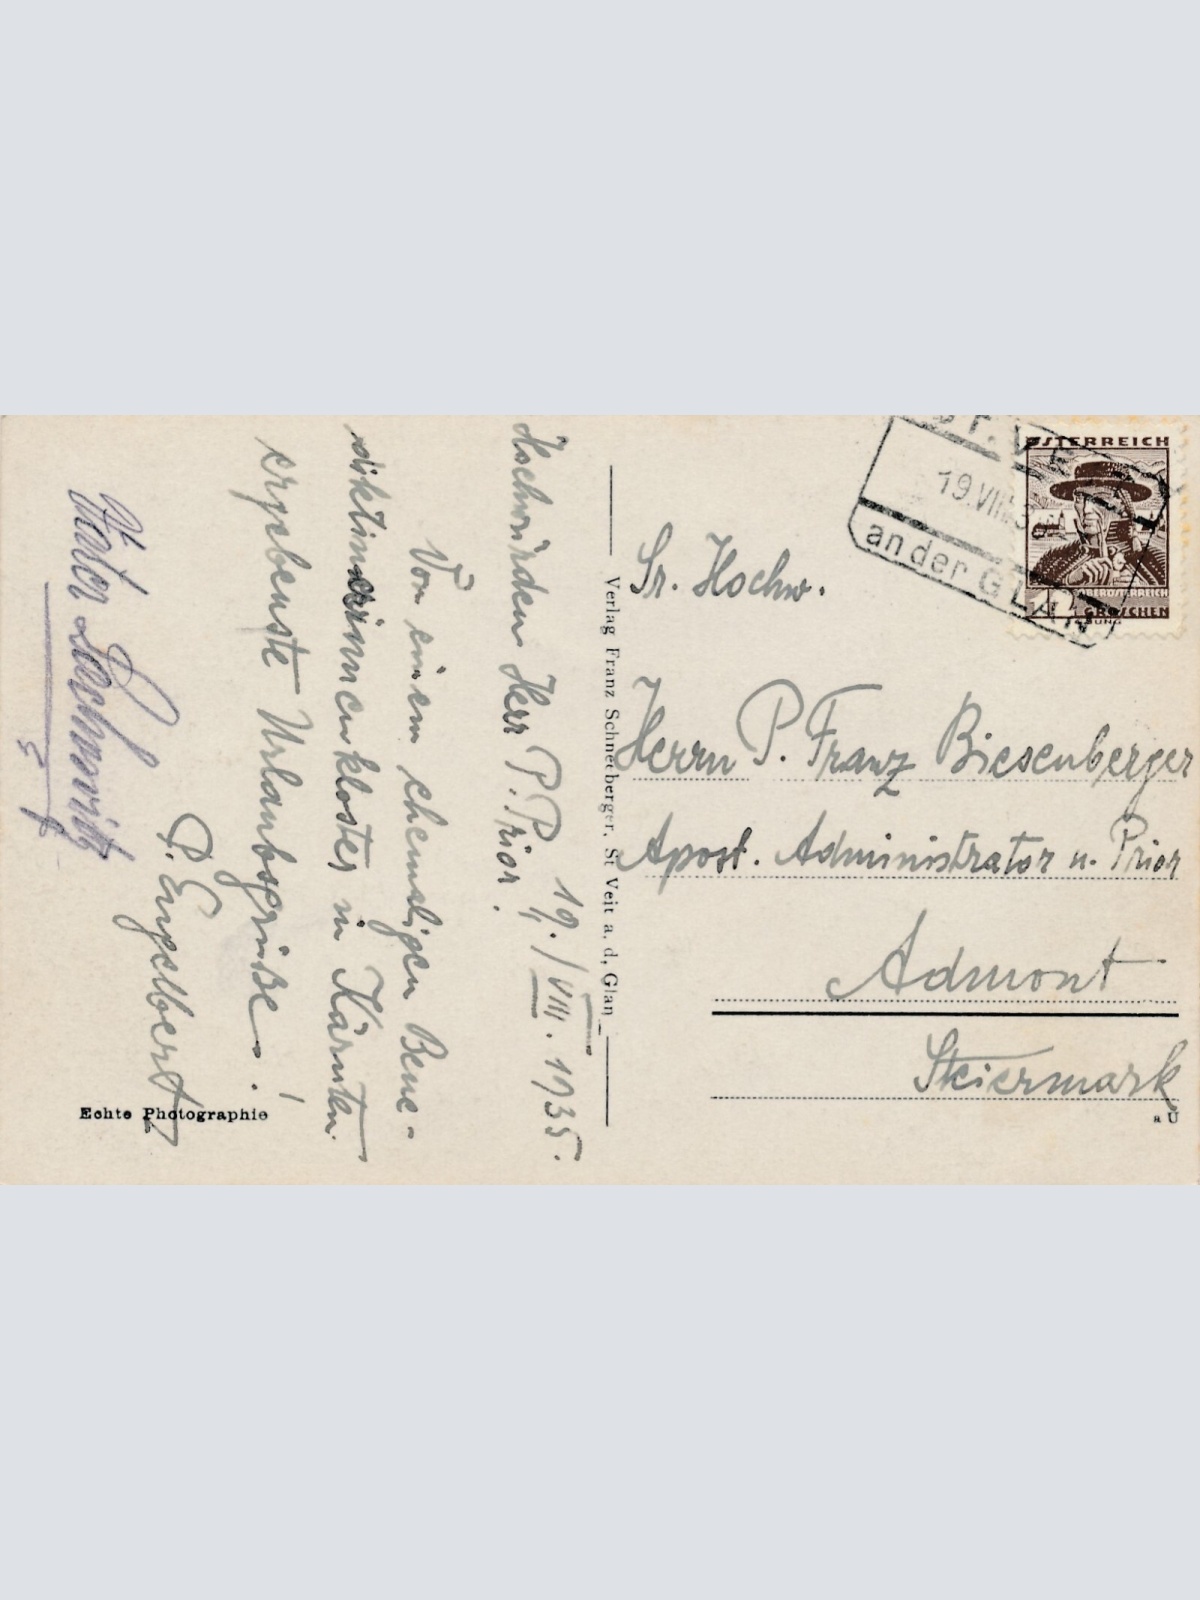 19./VIII. 1935.
Hochwürden Herr P. Prior!
Von einem ehemaligen Bene-
diktinerinnenkloster in Kärnten
ergebenste Urlaubsgrüße!
P. Engelbert
Echte Photographie
Verlag Franz Schneeberger, St Veit a. d, Glan
ST. VEIT
19.VIII.35
an der GLAN
ÖSTERREICH
OBERÖSTERREICH
GROSCHEN
Sr. Hochw.
Herrn P. Franz Biesenberger
Apost. Administrator u. Prior
Admont
Steiermark
a Ü